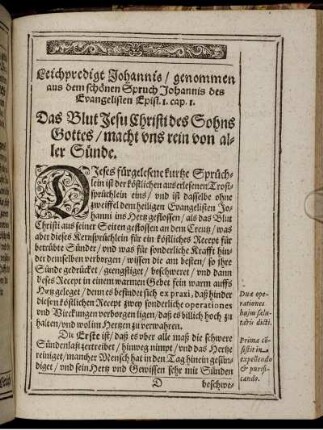 Leichpredigt Johannis / genommen
aus dem schönen Spruch Johannis des
Evangelisten Epist. 1. cap. 1.
Das Blut Jesu Christi des Sohns
Gottes / macht vns rein von al-
ler Sünde.
DIeses fürgelesene kurtze Sprüch-
lein ist der köstlichen auserlesenen Trost-
sprüchlein eins / vnd ist dasselbe ohne
zweiffel dem heiligen Evangelisten Jo-
hanni ins Hertz geflossen / als das Blut
Christi aus seiner Seiten geflossen an dem Creutz / was
aber dieses Kernsprüchlein für ein köstliches Recept für
betrübte Sünder / vnd was für sonderliche Krafft hin-
der demselben verborgen / wissen die am besten / so ihre
Sünde gedrücket / geengstiget / beschweret / vnd dann
dieses Recept in einem warmen Gebet fein warm auffs
Hertz geleget / denn es befindet sich ex praxi, daß hinder
diesem köstlichen Recept zwey sonderliche operationes
vnd Wirckungen verborgen ligen / daß es billich hoch zu
halten / vnd wol im Hertzen zu verwahren.
Die Erste ist / daß es vber alle maß die schwere
Sündenlast zertreibet / hinweg nimpt / vnd das Hertze
reiniget / mancher Mensch hat in den Tag hinein gesün-
diget / vnd sein Hertz vnd Gewissen sehr mit Sünden
D beschwe-
Duæ ope-
rationes
hujus salu-
taris dicti.
Prima cõ-
sistit in
expellendo
& purifi-
cando.